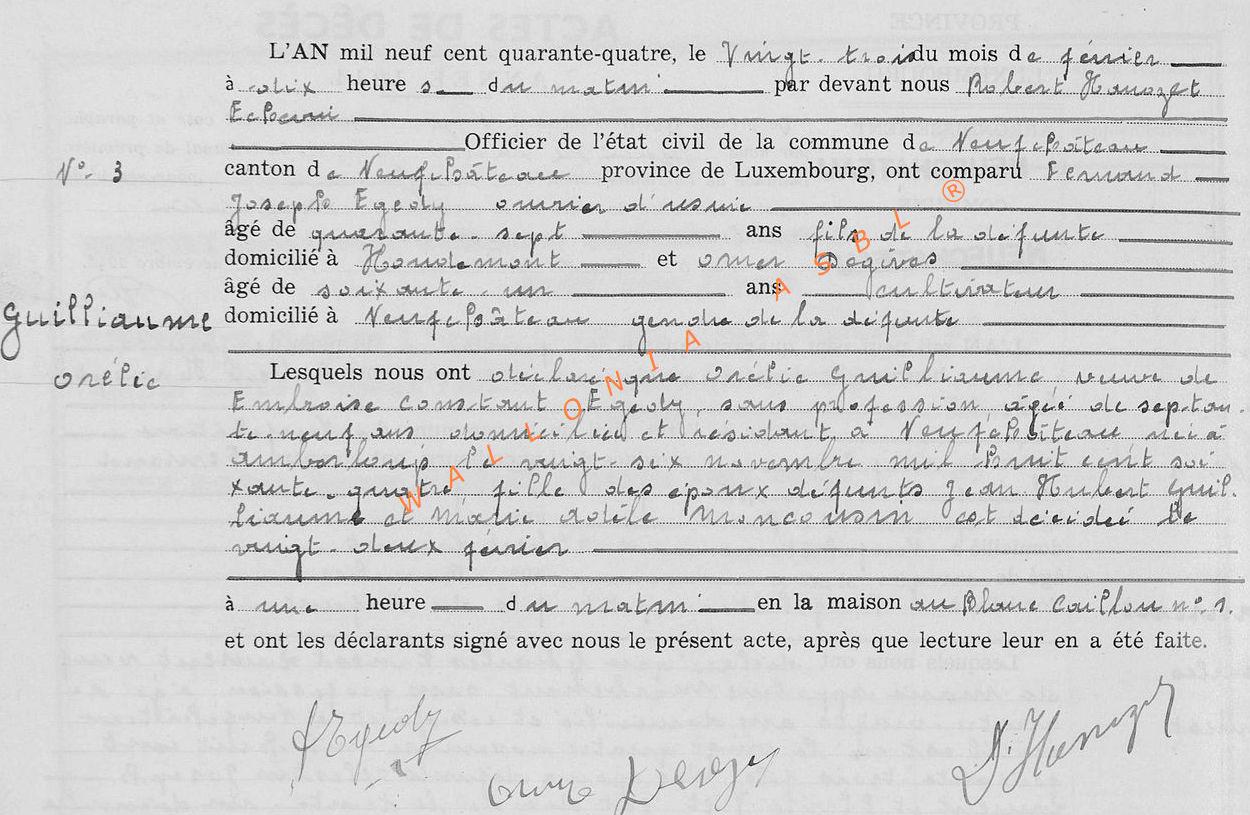 L'AN mil neuf cent quarante-quatre, le Vingt-trois du mois de février
à dix heure s du matin par devant nous Robert
Officier de l'état civil de la commune de Neufchâteau
N° 3
canton de Neufchâteau province de Luxembourg, ont comparu Fernand
Joseph Egedy ouvrier d'usine
âgé de quarante-sept ans fils de la défunte
domicilié à Houdemont et omer Degives
âgé de soixante-un ans cultivateur
Guilliaume
domicilié à Neufchâteau gendre de la défunte
orélie
Lesquels nous ont déclaré que orélie Guilliaume, veuve de
Embroise Constant Egedy, sans profession, âgée de septan-
te-neuf ans, domiciliée et résidant à Neufchâteau, née à
amberloup le vingt-six novembre mil huit cent soi-
xante-quatre, fille des époux défunts Jean Hubert Guil-
liaume et marie adèle moncousin est décédée le
vingt-deux février
à une heure du matin en la maison au Blanc Caillou n° 1.
et ont les déclarants signé avec nous le présent acte, après que lecture leur en a été faite.
WALLONIA ASBL ®
Egedy